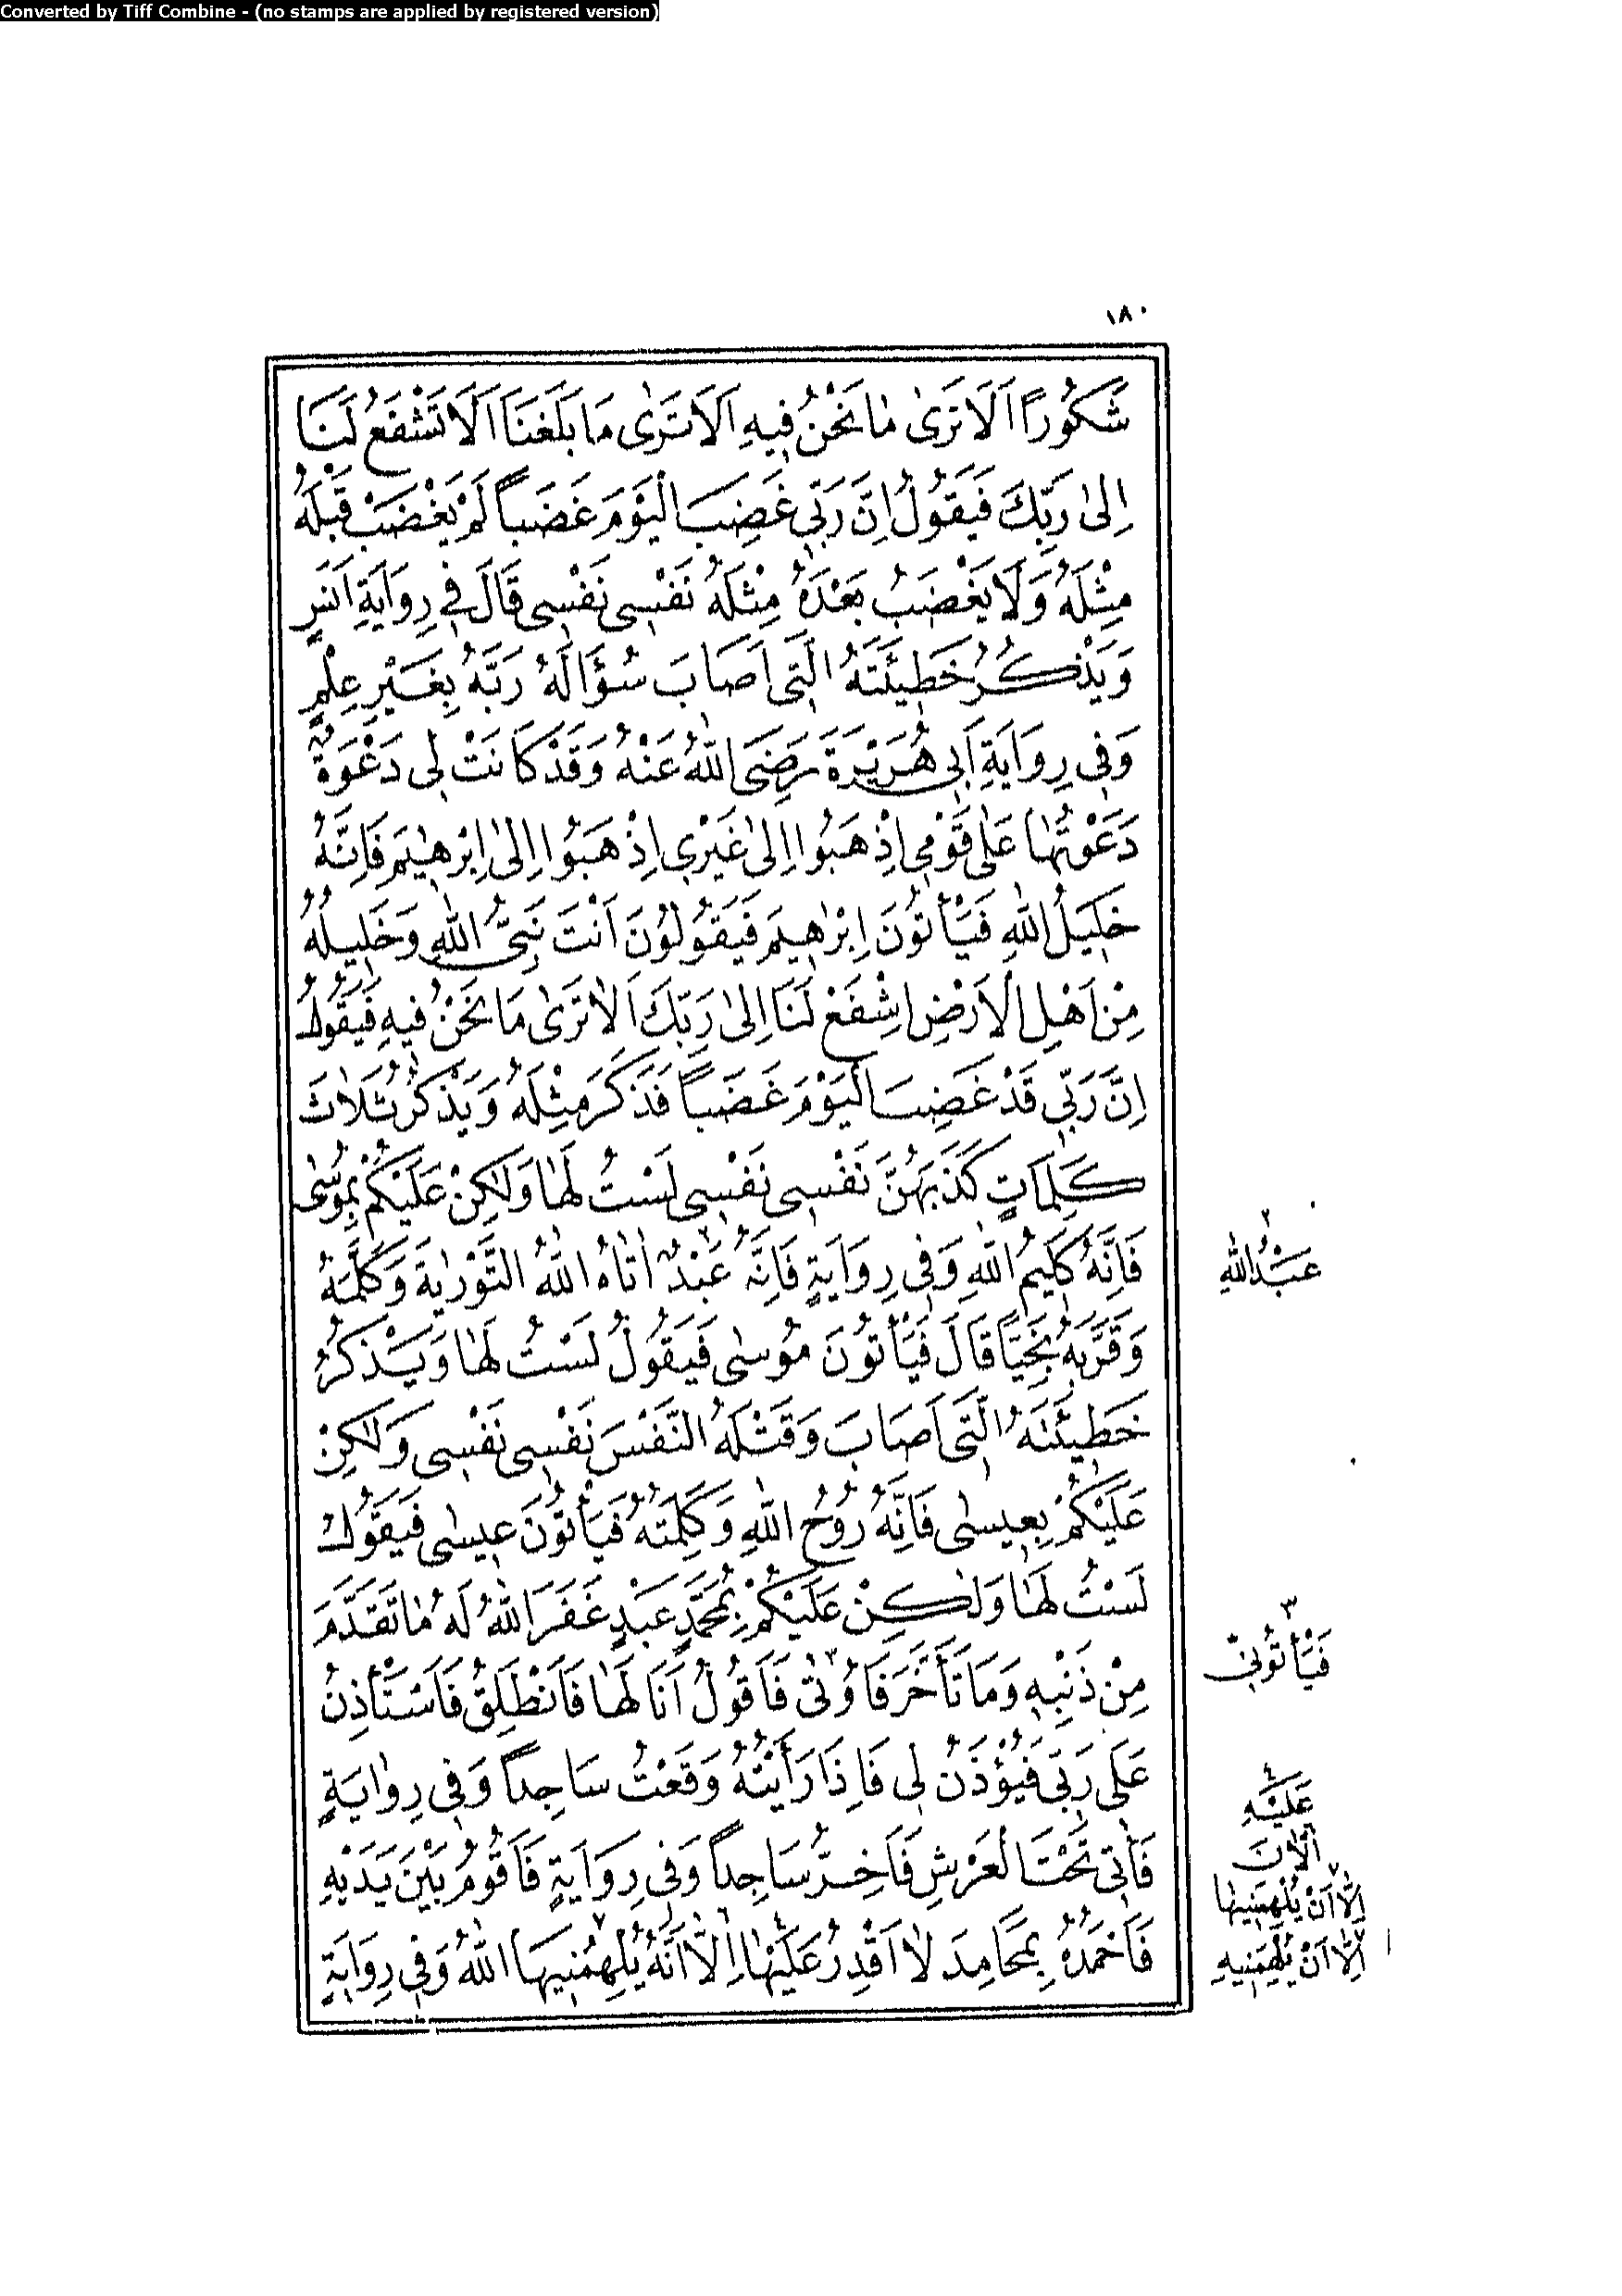 Converted by Tiff Combine - (no stamps are applied by registered version)
١٨٠
شَكُوراً اَلَا تَرٰى مٰا نَحْنُ فِيهِ اَلَا تَرٰى مَا بَلَغَنَا اَلَا تَشْفَعُ لَنَا
اِلىٰ رَبِّكَ فَيَقُولُ اِنَّ رَبِّي غَضِبَ الْيَوْمَ غَضَباً لَمْ يَغْضَبْ قَبْلَهُ
مِثْلَهُ وَلَا يَغْضَبُ بَعْدَهُ مِثْلَهُ نَفْسِى نَفْسِى قَالَ فِي رِوَايَةِ اَنَسٍ
وَيَذْكُرُ خَطِيئَتَهُ الَّتِى اَصَابَ سُؤَالَهُ رَبَّهُ بِغَيْرِ عِلْمٍ
وَفِى رِوَايَةِ اَبِى هُرَيْرَةَ رَضِىَ اللهُ عَنْهُ وَقَدْ كَانَتْ لِى دَعْوَةٌ
دَعَوْتُهَا عَلٰى قَوْمِى اِذْهَبُوا اِلىٰ غَيْرِى اِذْهَبُوا اِلىٰ اِبْرٰهِيمَ فَاِنَّهُ
خَلِيلُ اللهِ فَيَأْتُونَ اِبْرٰهِيمَ فَيَقُولُونَ اَنْتَ نَبِىُّ اللهِ وَخَلِيلُهُ
مِنْ اَهْلِ الْاَرْضِ اِشْفَعْ لَنَا اِلىٰ رَبِّكَ اَلَا تَرٰى مَا نَحْنُ فِيهِ فَيَقُولُ
اِنَّ رَبِّى قَدْ غَضِبَ الْيَوْمَ غَضَباً فَذَكَرَ مِثْلَهُ وَيَذْكُرُ ثَلَاثَ
كَلِمَاتٍ كَذَبَهُنَّ نَفْسِى نَفْسِى لَسْتُ لَهٰا وَلٰكِنْ عَلَيْكُمْ بِمُوسٰى
فَاِنَّهُ كَلِيمُ اللهِ وَفِى رِوَايَةٍ فَاِنَّهُ عَبْدٌ٢ اٰتَاهُ اللهُ التَّوْرٰيةَ وَكَلَّمَهُ
وَقَرَّبَهُ نَجِيّاً قَالَ فَيَأْتُونَ مُوسٰى فَيَقُولُ لَسْتُ لَهٰا وَيَذْكُرُ
خَطِيئَتَهُ الَّتِى اَصَابَ وَقَتْلَهُ النَّفْسَ نَفْسِى نَفْسِى وَلٰكِنْ
عَلَيْكُمْ بِعِيسٰى فَاِنَّهُ رُوحُ اللهِ وَكَلِمَتُهُ فَيَأْتُونَ عِيسٰى فَيَقُولُ
لَسْتُ لَهٰا وَلٰكِنْ عَلَيْكُمْ بِمُحَمَّدٍ عَبْدٍ غَفَرَ اللهُ لَهُ مٰا تَقَدَّمَ
مِنْ ذَنْبِهِ وَمَا تَأَخَّرَ فَاُوتٰى٣ فَاَقُولُ اَنَا لَهٰا فَاَنْطَلِقُ فَاَسْتَأْذِنُ
عَلٰى رَبِّى فَيُؤْذَنُ لِى فَاِذَا رَأَيْتُهُ وَقَعْتُ سَاجِداً وَفِى رِوٰايَةٍ
فَاٰتِى تَحْتَ الْعَرْشِ فَاَخِرُّ سَاجِداً وَفِى رِوَايَةٍ فَاَقُومُ بَيْنَ يَدَيْهِ
فَاَحْمَدُهُ بِمَحَامِدَ لٰا اَقْدِرُ عَلَيْهٰا٤ اِلَّا٦ اَنَّهُ يُلْهِمُنِيهَا٧ اللهُ وَفِى رِوَايَةٍ
٢
عَبْدُاللهِ
٣
فَيَأْتُونِى
٤
عَلَيْهِ
اَلْاٰنَ
اِلَّا اَنْ يُلْهِمَنِيهٰا
اِلَّا اَنْ يُلْهِمَنِيهِ